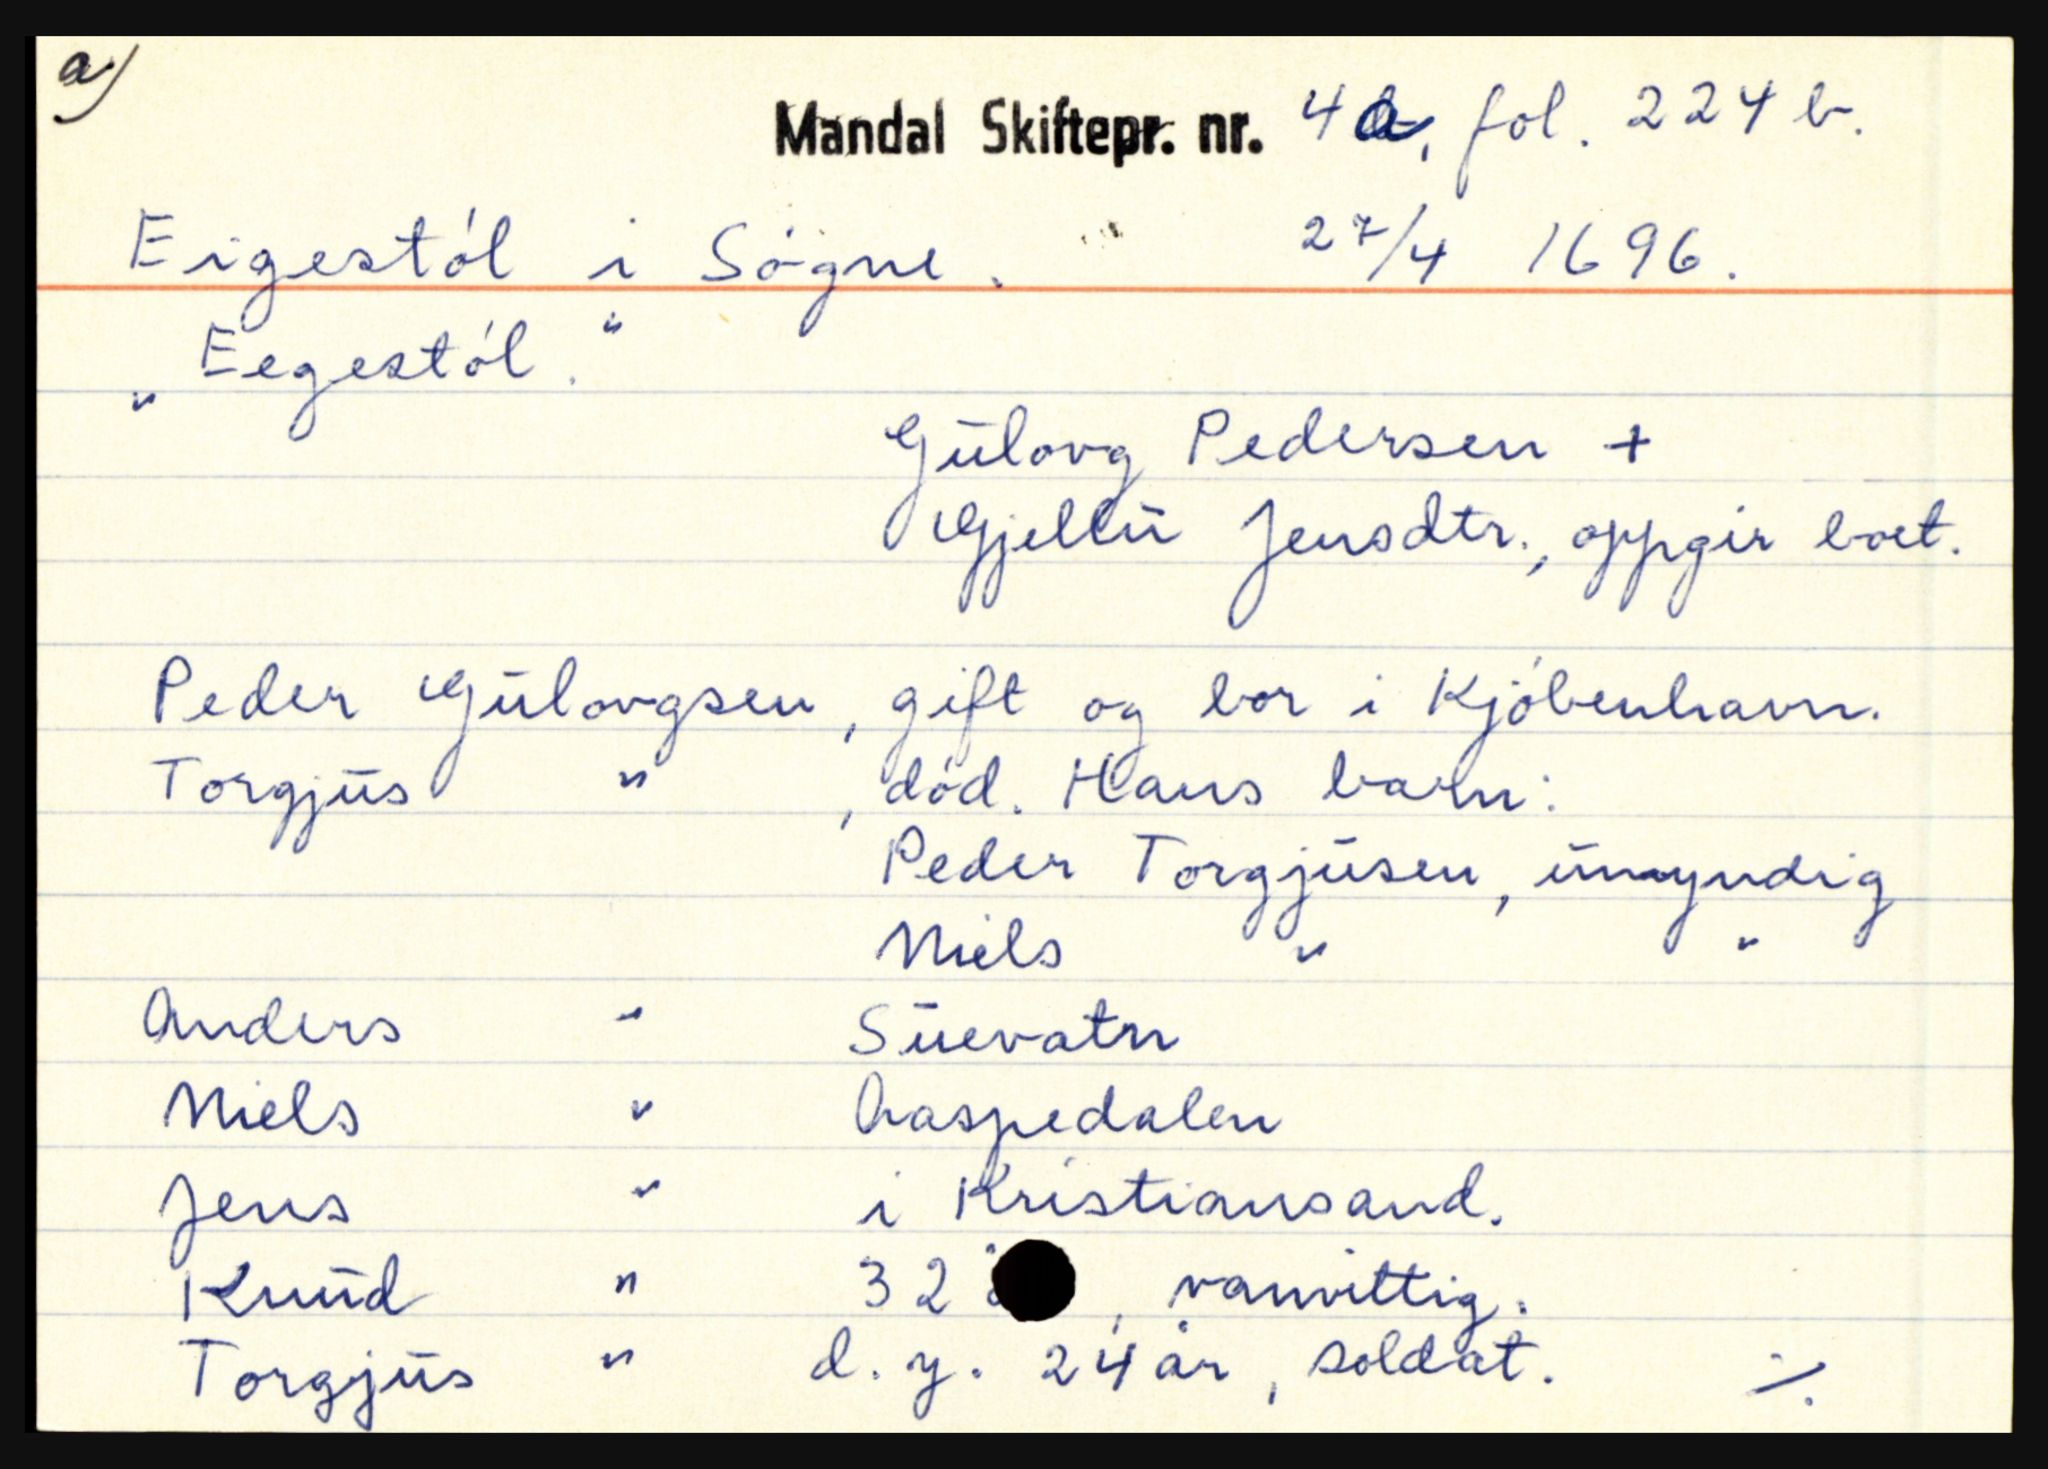 a)
Mandal Skiftepr. nr. 4a, fol. 224 b.
Eigestøl i Søgne. 27/4 1696.
"Eegestøl."
Gülovg Pedersen +
Gjellü Jensdtr., oppgir boet.
Peder Gülovgsen, gift og bor i Kjøbenhavn.
Torgjüs " , død. Hans barn:
Peder Torgjüsen, ümyndig
Niels " "
Anders " Süevatn
Niels " Aaspedalen
Jens " i Kristiansand.
Knüd " 32 , vanvittig.
Torgjüs " d. y. 24 år, soldat. ./.